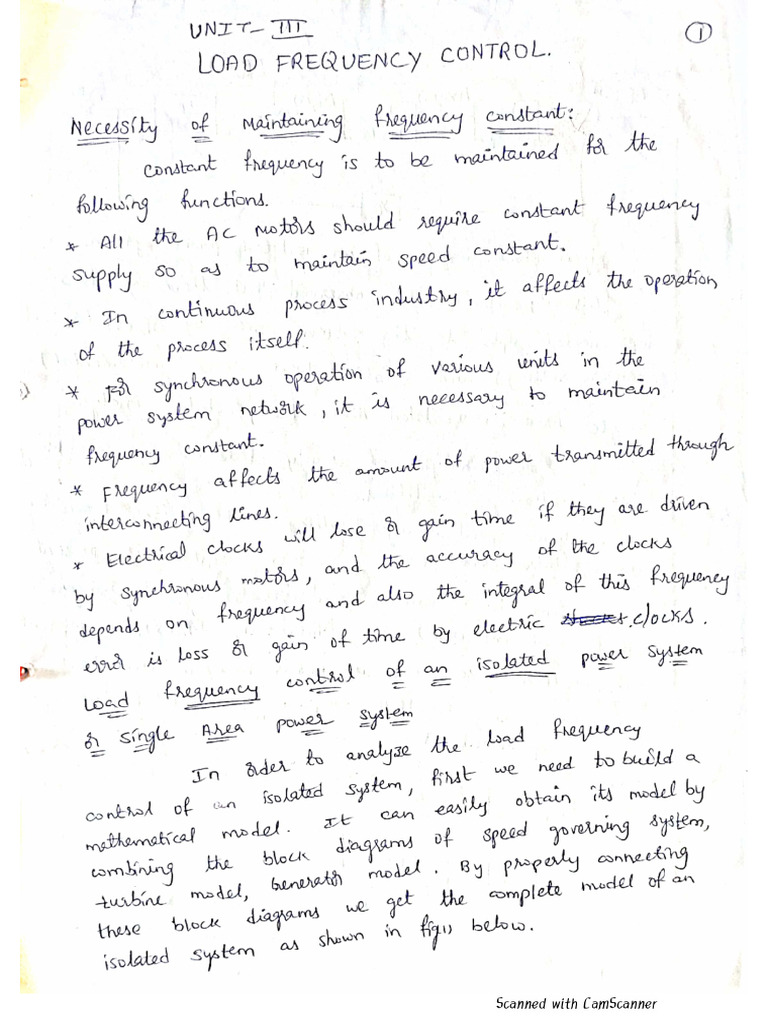 UNIT-III
1
LOAD FREQUENCY CONTROL.
Necessity of Maintaining frequency constant:
constant frequency is to be maintained for the
following functions.
* All the AC motors should require constant frequency
supply so as to maintain speed constant.
* In continuous process industry, it affects the operation
of the process itself.
* For synchronous operation of various units in the
power system network, it is necessary to maintain
frequency constant.
* Frequency affects the amount of power transmitted through
interconnecting lines.
* Electrical clocks will lose or gain time if they are driven
by synchronous motors, and the accuracy of the clocks
depends on frequency and also the integral of this frequency
error is loss or gain of time by electric clocks.
Load frequency control of an isolated power system
or single Area power system
In order to analyze the load frequency
control of an isolated system, first we need to build a
mathematical model. It can easily obtain its model by
combining the block diagrams of speed governing system,
turbine model, Generator model. By properly connecting
these block diagrams we get the complete model of an
isolated system as shown in fig(1) below.
Scanned with CamScanner